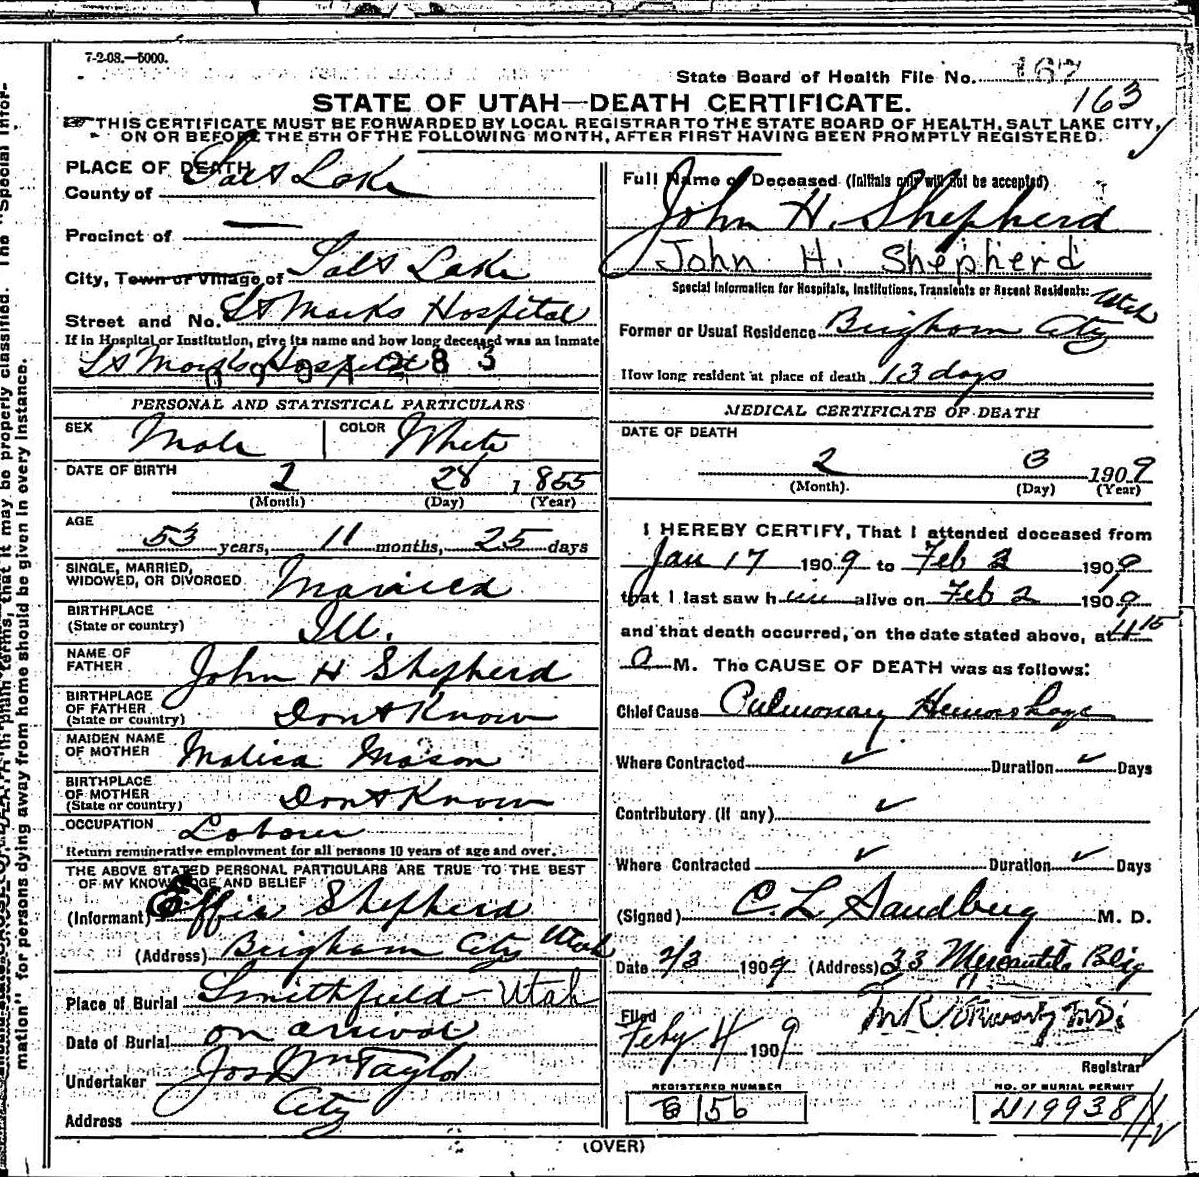 7-2-08.—5000.
State Board of Health File No. 167
163
STATE OF UTAH—DEATH CERTIFICATE.
THIS CERTIFICATE MUST BE FORWARDED BY LOCAL REGISTRAR TO THE STATE BOARD OF HEALTH, SALT LAKE CITY,
ON OR BEFORE THE 5TH OF THE FOLLOWING MONTH, AFTER FIRST HAVING BEEN PROMPTLY REGISTERED.
PLACE OF DEATH
County of Salt Lake
Precinct of —
City, Town or Village of Salt Lake
Street and No. St Marks Hospital
If in Hospital or Institution, give its name and how long deceased was an inmate
St Marks Hospital
PERSONAL AND STATISTICAL PARTICULARS
SEX Male COLOR White
DATE OF BIRTH
2 28 1855
(Month) (Day) (Year)
AGE
53 years, 11 months, 25 days
SINGLE, MARRIED,
WIDOWED, OR DIVORCED Married
BIRTHPLACE
(State or country) Ill.
NAME OF
FATHER John H Shepherd
BIRTHPLACE
OF FATHER
(State or country) Dont Know
MAIDEN NAME
OF MOTHER Malica Mason
BIRTHPLACE
OF MOTHER
(State or country) Dont Know
OCCUPATION Laborer
Return remunerative employment for all persons 10 years of age and over.
THE ABOVE STATED PERSONAL PARTICULARS ARE TRUE TO THE BEST
OF MY KNOWLEDGE AND BELIEF
(Informant) Effie Shepherd
(Address) Brigham City Utah
Place of Burial Smithfield - Utah
Date of Burial on arrival
Undertaker Jos Wm Taylor
Address City
Full Name of Deceased (Initials only will not be accepted)
John H. Shepherd
John H. Shepherd
Special Information for Hospitals, Institutions, Transients or Recent Residents:
Former or Usual Residence Brigham City Utah
How long resident at place of death 13 days
MEDICAL CERTIFICATE OF DEATH
DATE OF DEATH
2 3 1909
(Month). (Day) (Year)
I HEREBY CERTIFY, That I attended deceased from
Jan 17 1909 to Feb 2 1909
that I last saw him alive on Feb 2 1909
and that death occurred, on the date stated above, at 11 15
a M. The CAUSE OF DEATH was as follows:
Chief Cause Pulmonary Hemorrhage
Where Contracted ✓ Duration ✓ Days
Contributory (if any) ✓
Where Contracted ✓ Duration ✓ Days
(Signed) C. L. Sandberg M. D.
Date 2/3 1909 (Address) 33 Mercantile Bldg
Filed
Feby 4 1909
Registrar
REGISTERED NUMBER
B 156
NO. OF BURIAL PERMIT
H19938
(OVER)
mation" for persons dying away from home should be given in every instance.